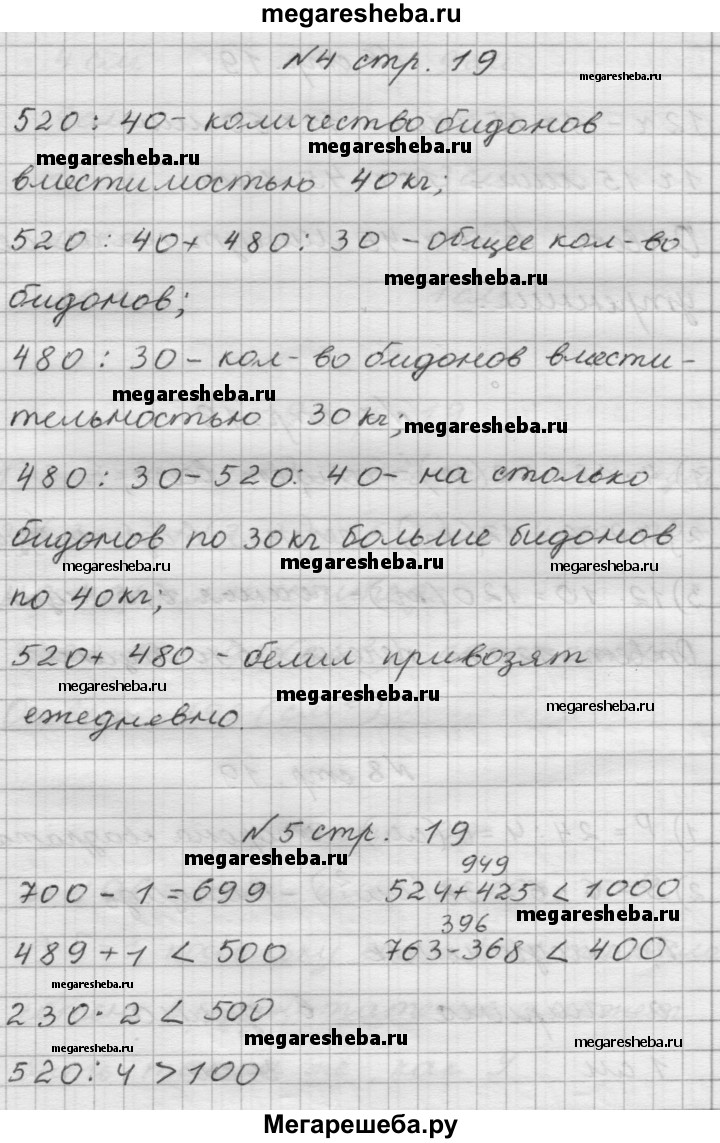 megaresheba.ru
№4 стр. 19
megaresheba.ru
520 : 40 - количество бидонов
megaresheba.ru megaresheba.ru
вместимостью 40кг;
520 : 40 + 480 : 30 - общее кол-во
megaresheba.ru
бидонов;
480 : 30 - кол-во бидонов вмести-
megaresheba.ru
тельностью 30кг;
megaresheba.ru
480 : 30 - 520 : 40 - на столько
бидонов по 30кг больше бидонов
megaresheba.ru megaresheba.ru megaresheba.ru
по 40кг;
520 + 480 - белил привозят
megaresheba.ru megaresheba.ru megaresheba.ru
ежедневно.
№5 стр. 19
megaresheba.ru
949
700 - 1 = 699 524 + 425 < 1000
megaresheba.ru
396
489 + 1 < 500 763 - 368 < 400
megaresheba.ru
230 · 2 < 500
megaresheba.ru megaresheba.ru megaresheba.ru
520 : 4 > 100
Мегарешеба.ру